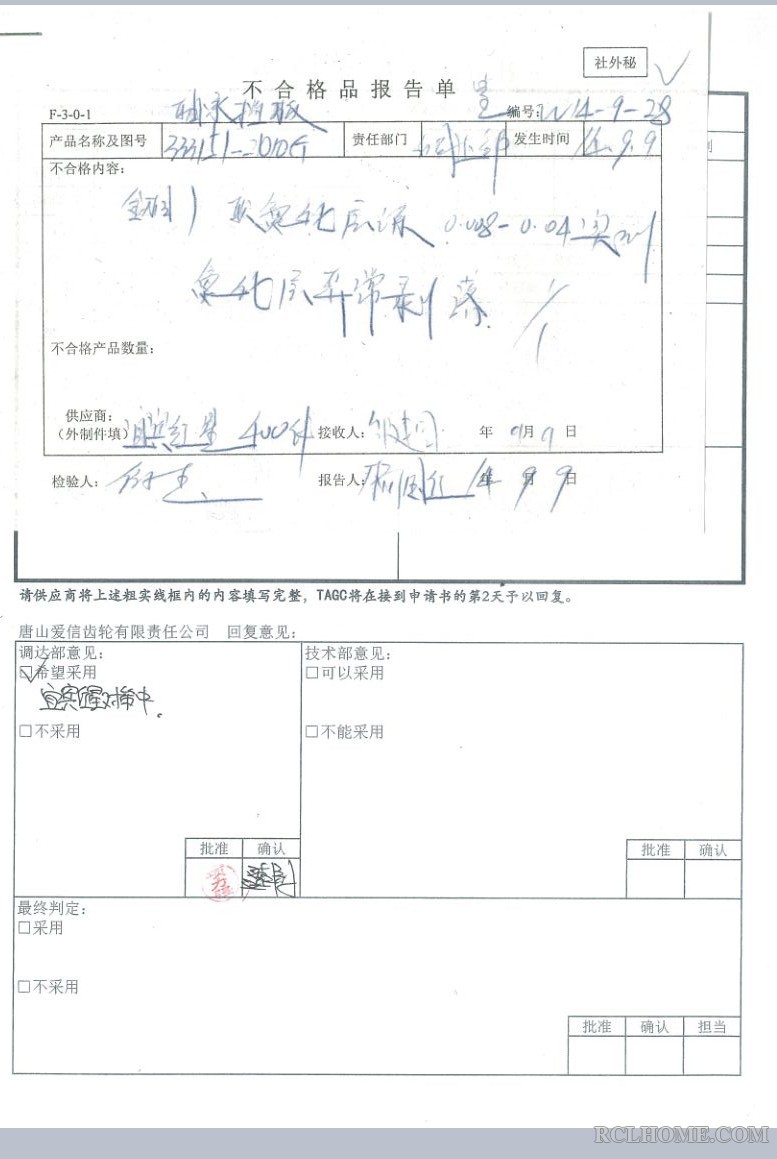 社外秘
不合格品报告单
F-3-0-1
编号: 14-9-28
轴承挡板
产品名称及图号 33151-2010G 责任部门 发生时间 14.9.9
不合格内容:
氮化层深 0.008-0.04 实测
氮化层异常剥落
不合格产品数量:
供应商:
(外制件填) 宜宾红星 400件 接收人: 年 9月9日
检验人: 报告人: 14年9月9日
请供应商将上述粗实线框内的内容填写完整,TAGC将在接到申请书的第2天予以回复。
唐山爱信齿轮有限责任公司 回复意见:
调达部意见: 技术部意见:
☑希望采用 □可以采用
宜宾红星对策中.
□不采用 □不能采用
批准 确认 批准 确认
最终判定:
□采用
□不采用
批准 确认 担当
RCLHOME.COM